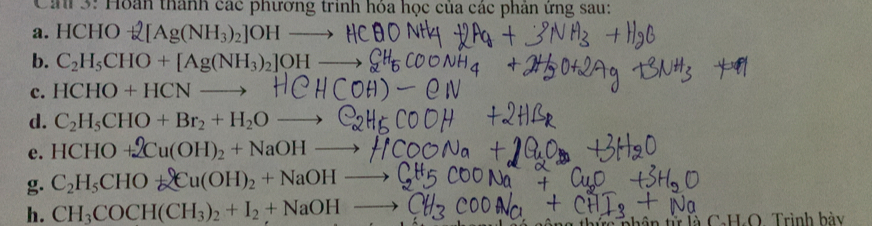 Câu 3: Hoàn thành các phương trình hóa học của các phản ứng sau:
a. HCHO + 2[Ag(NH₃)₂]OH ⟶ HCOONH₄ + 2Ag + 3NH₃ + H₂O
b. C₂H₅CHO + [Ag(NH₃)₂]OH ⟶ C₂H₅COONH₄ + H₂O + 2Ag + 3NH₃
c. HCHO + HCN ⟶ HCH(OH) – CN
d. C₂H₅CHO + Br₂ + H₂O ⟶ C₂H₅COOH + 2HBr
e. HCHO + 2Cu(OH)₂ + NaOH ⟶ HCOONa + Cu₂O + 3H₂O
g. C₂H₅CHO + 2Cu(OH)₂ + NaOH ⟶ C₂H₅COONa + Cu₂O + 3H₂O
h. CH₃COCH(CH₃)₂ + I₂ + NaOH ⟶ CH₃COONa + CHI₃ + Na
công thức phân tử là Trình bày